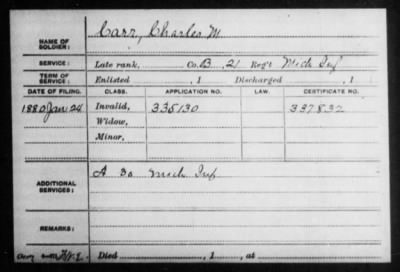 NAME OF SOLDIER: Carr, Charles M
SERVICE: Late rank, Co. B, 21 Reg't Mich Inf
TERM OF SERVICE: Enlisted , 1 Discharged , 1
DATE OF FILING. CLASS. APPLICATION NO. LAW. CERTIFICATE NO.
1880 Jan 24 Invalid, 335130 337832
Widow,
Minor,
ADDITIONAL SERVICES: A 30 Mich Inf
REMARKS:
Died , 1 , at